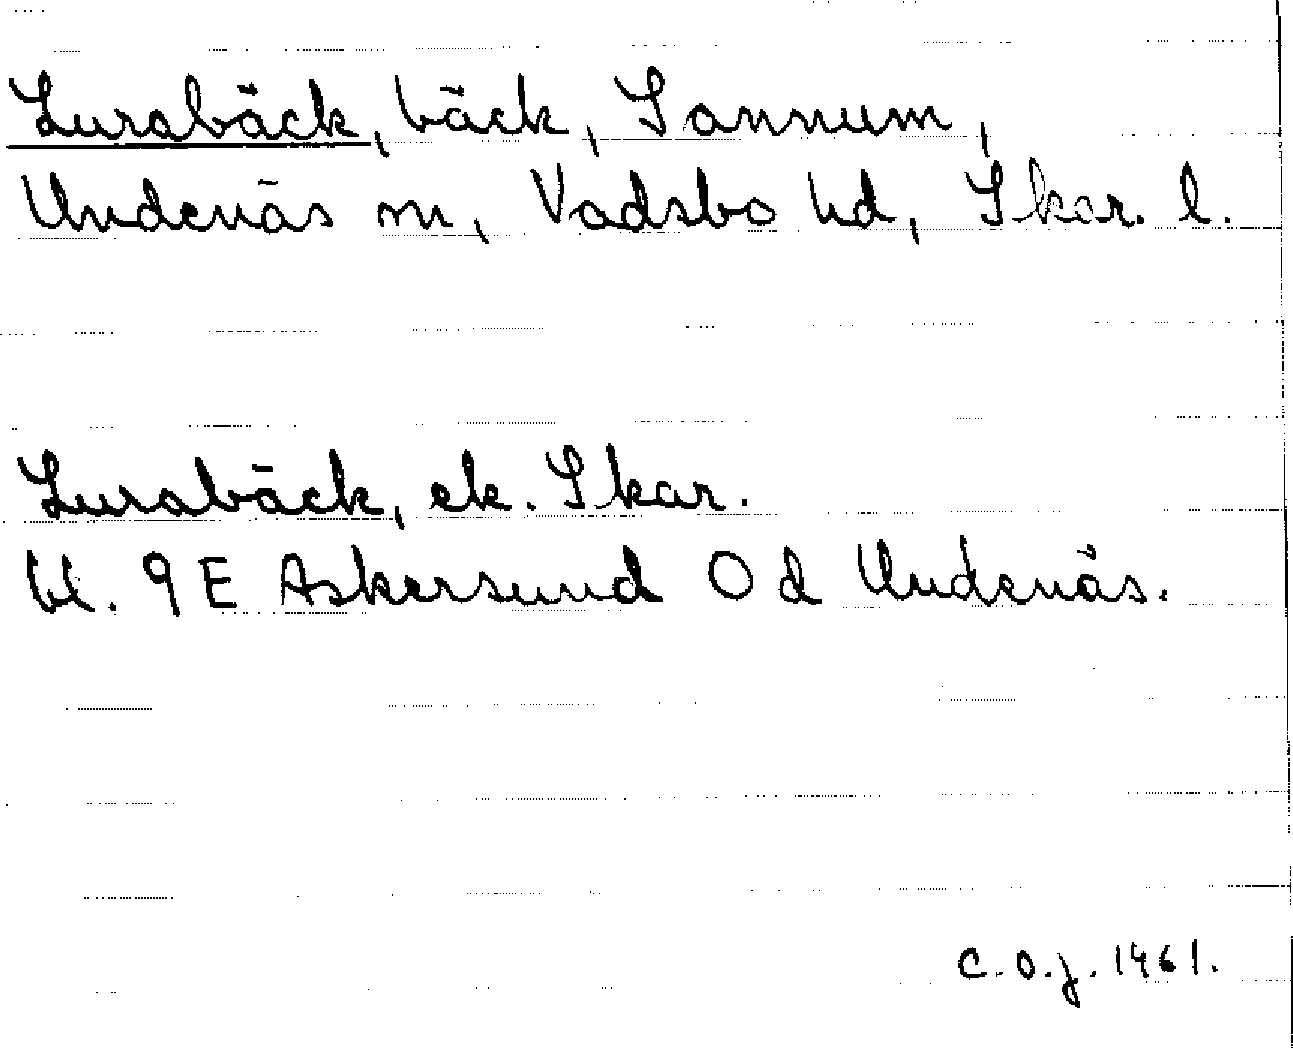 Lurabäck, bäck, Sannum,
Undenäs sn, Vadsbo hd, Skar. l.
Lurabäck, ek. Skar.
bl. 9E Askersund 0 d Undenäs.
C.O.J. 1961.